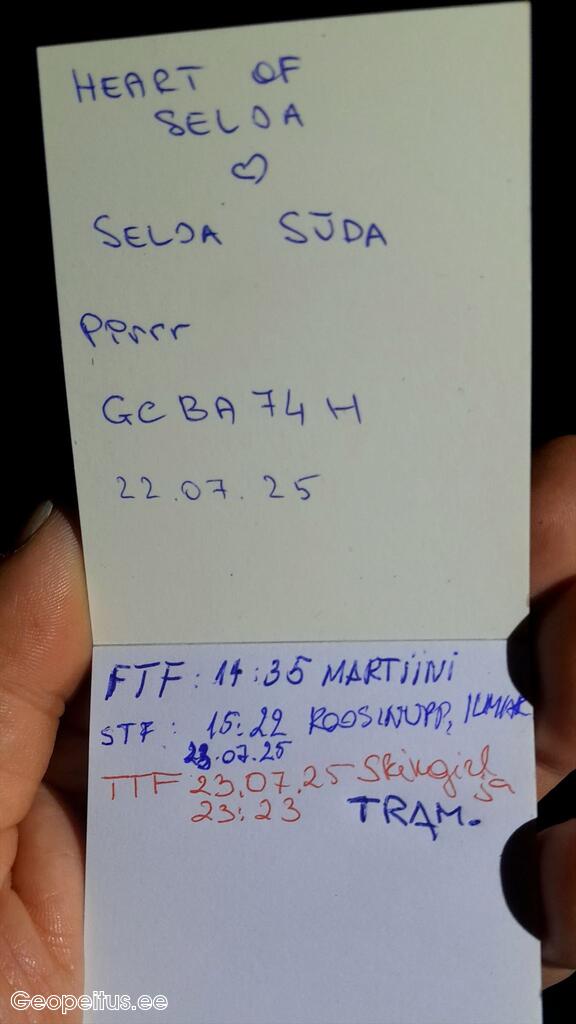 HEART OF
SELDA
♡
SELDA SÜDA
Pipsrr
GCBA74H
22.07.25
FTF: 14:35 MARTIINI
STF: 15:22 ROOSINUPP, ILMAR
23.07.25
TTF 23.07.25 Skingirl ja
23:23 TRAM.
Geopeitus.ee